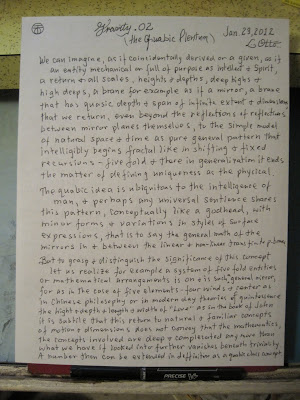 Gravity .02 Jan 23, 2012
(the Quasic Plenum) L. Otto
We can imagine, as if coincidentally derived or a given, as if
an entity mechanical or full of purpose as intellect & Spirit,
a return to all scales, heights & depths, deep highs &
high deeps, a brane for example as if a mirror, a brane
that has quasic depth & span of infinite extent & dimension
that we return, even beyond the reflections of reflections
between mirror planes themselves, to the simple model
of natural space & time as pure general pattern that
intelligibly begins fractal like in shifting & fixed
recursions - five fold & there in generalization it ends
the matter of defining uniqueness as the physical.
The quasic idea is ubiquitous to the intelligence of
man, & perhaps any universal sentience shares
this pattern, conceptually like a godhead, with
minor forms & variations in styles of surface
expressions, that is to say the general math of the
mirrors in & between the linear & non-linear transfinite
But to grasp & distinguish the significance of this concept
let us realize for example a system of five fold entities
or mathematical arrangements is on its such general mirror,
for as in the case of five elements - four winds & center as
in Chinese philosophy or in modern day theories of quintessence
the hight & depth & length & width of "Love" as in the book of John
it is subtle that this return to natural & familiar concepts
of motion & dimensions does not convey that the mathematics,
the concepts involved are deep & complicated any more than
what we have if looked into further vanishes beneath triviality
A number then can be extended in definition as a quasic concept
PRECISE V5